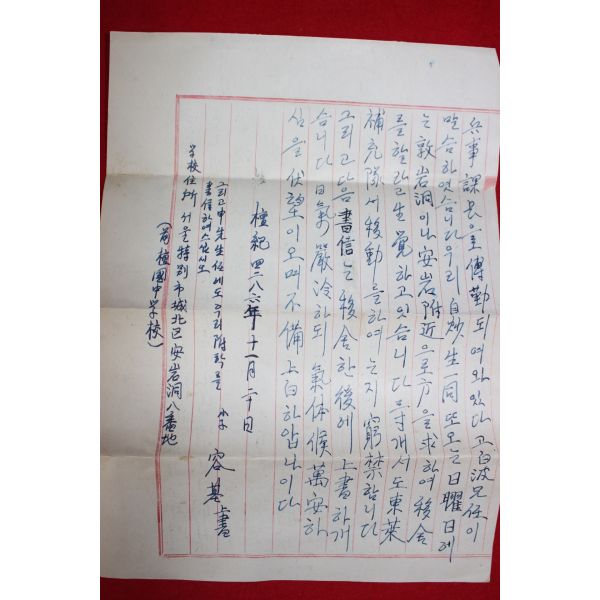 兵事課長으로 傳勤되여와있다고 白波兄任이
말合하엿슴니다 우리 自炒生一同 또 오는 日曜日에
는 敦岩洞이나 安岩附近으로 方을 求하여 移舍
를 할라고 生覺하고 잇슴니다 게서도 東萊
補充隊서 移動를 하여는지 窮禁합니다
그리고 다음 書信는 移舍한 後에 上書하개
슴니다 日氣嚴冷하되 氣体候萬安하
심을 伏望이오며 不備上白하압나이다
檀紀四二八六年 十一月二十日
容基 上書
그리고 申先生任에도 우리 附학를
書信하여 주십시오
学校住所 서울特別市城北区安岩洞八番地
(前檀國中学校)